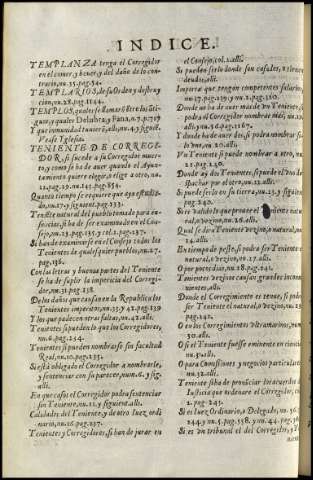 INDICE.
TEMPLANZA tenga el Corregidor
en el comer, y beuer, y del daño de lo con-
trario, nu.15.pag.54.
TEMPLARIOS, de su Orden y destruy
cion, nu.28.pag.1144.
TEMPLOS, quales se llamarõ Etre los
guos, y quales Delubra, y Fana, n.7.p.709
Y que inmunidad tuuierõ, alli, nu.4.y sigu
Vease Iglesias.
TENIENTE DE CORREGI-
DOR, si sucede a su Corregidor muer-
to, y como se ha de auer quando el Ayun-
tamiento quiere elegir, o elige a otro, nu.
pag.29.nu.145.pag.854.
Quanto tiempo se requiere que aya estudia-
do, nu.17.y siguent.pag.233.
Teniente natural del pueblo tomado para au-
sencias, si ha de ser examinado en el Con-
sejo, nu.23.pag.235.y col.2.pag.237.
Si han de examinarse en el Consejo todos los
Tenientes de qualesquier pueblos, nu.27.
pag.236.
Con las letras y buenas partes del Teniente
se ha de suplir la impericia del Corregi-
dor, nu.31.pag.238.
De los daños que causan en la Republica los
Tenientes imperitos, nu.35.y 42.pag.239
Y los que padecen otras faltas, nu.42.alli.
Tenientes si pueden lo que los Corregidores,
nu.6.pag.234.
Tenientes si pueden nombrarse sin facultad
Real, nu.10.pag.235.
Si està obligado el Corregidor a nombrarle,
y sentenciar con su parecer, num.6.y sig.
alli.
En que casos el Corregidor podra sentenciar
sin Teniente, nu.11.y siguient.alli.
Calidades del Teniente, y de otro Iuez ordi-
nario, nu.16.pag.237.
Tenientes y Corregidores, si han de jurar en
el Consejo, col.2.alli.
Si pueden serlo donde son casados, o tienen
deudos, alli.
Importa que tengan competentes salarios,
nu.17.pag.139.y nu.2.pag.160.
Donde no ha de auer mas de vn Teniente, si
podra el Corregidor nombrar otro, nu.
alli, y nu.56.pag.167.
Y donde ha de auer dos, si podra nombrar so
lo vno, nu.20.alli.
Vn Teniente si puede nombrar a otro, nu.
22.pag.240.
Donde ay dos Tenientes, si puede el vno des-
pachar por el otro, nu.22.alli.
Si puede serlo en su tierra, nu.23.y siguien.
pag.240.
Si es valido lo que prouee el Teniente natu
ral, o vezino, nu.27.alli.
Qual se dira Teniente natural, o vezino, nu.
24.alli.
En tiempo de peste, si podra ser Teniente el
natural, o vezino, nu.27.alli.
O por poco dias, nu.28.pag.241.
Tenientes vezinos causan grandes inconue-
nientes, alli.
Donde el Corregimiento es tenue, si podra
ser Teniente el natural, o vezino, nu.29.
alli.
O en los Corregimientos Vltramarinos, num.
30.alli.
O si el Teniente fuesse eminente en ciencia,
nu.31.alli.
O para Comissiones y negocios particulares,
nu.32.alli.
Teniente si ha de pronũciar los acuerdos de
Iusticia que ordenare el Corregidor, col.
2.pag.241.
Si es Iuez Ordinario, o Delegado, nu.56.
244.y nu.5.pag.358.y nu.44.pag.36
Si es vn tribunal el del Corregidor, y T